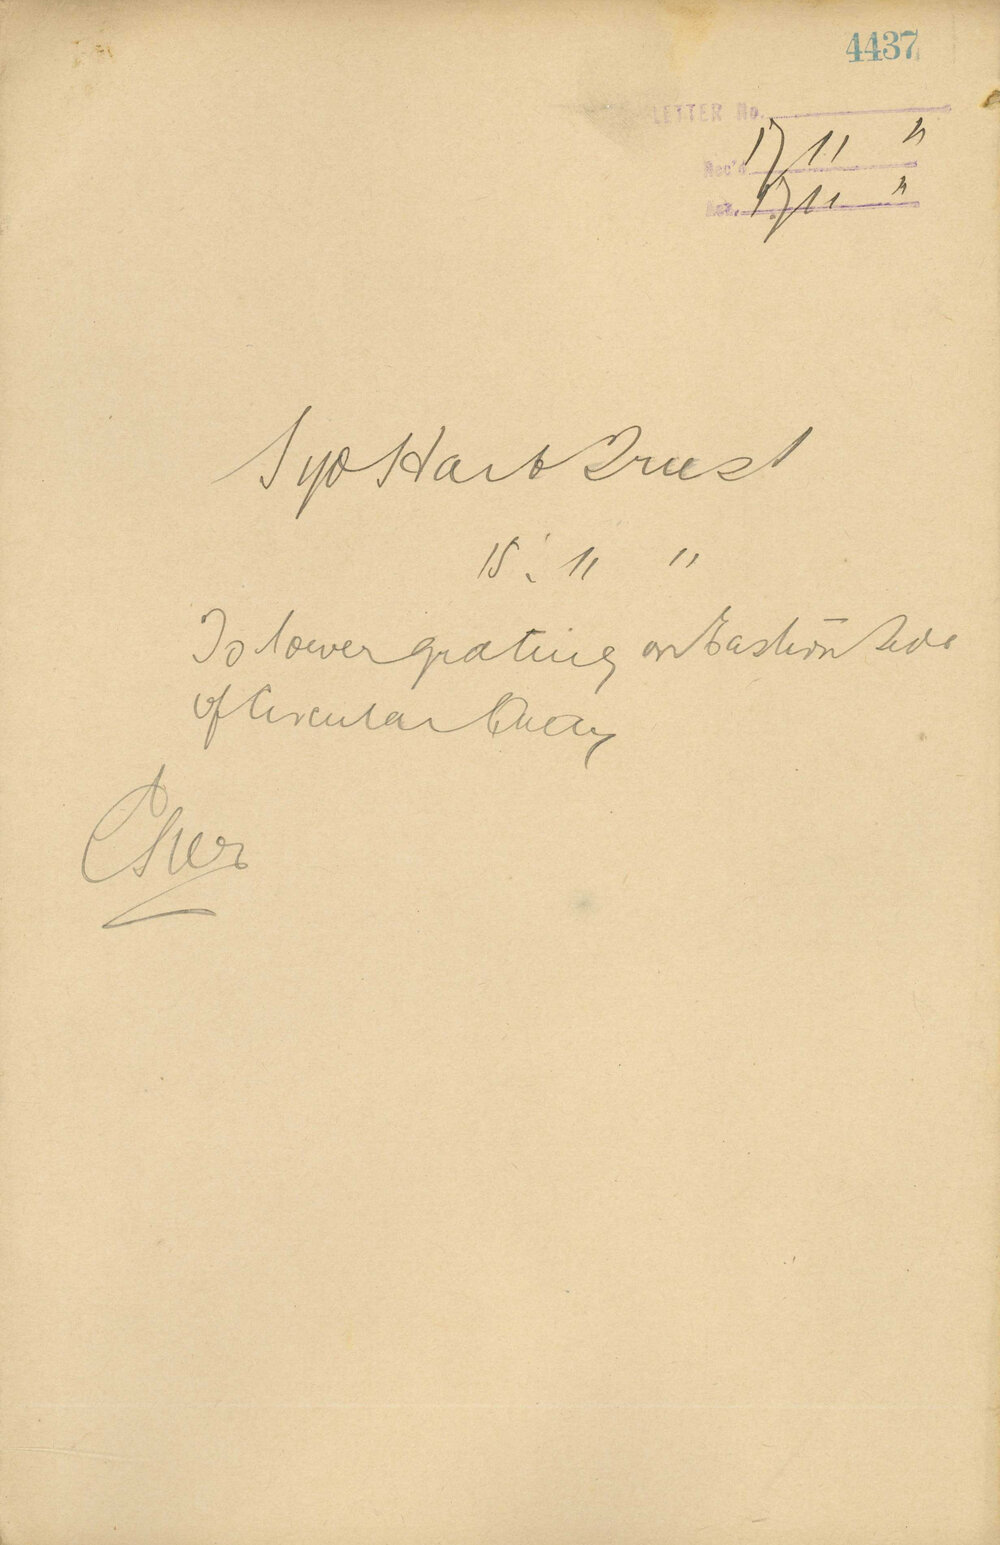 4437
LETTER No.
Rec'd 17/11 "
Ans. 17/11 "
Syd Harb Trust
15. 11 "
To lower grating on Eastern side
of Circular Quay